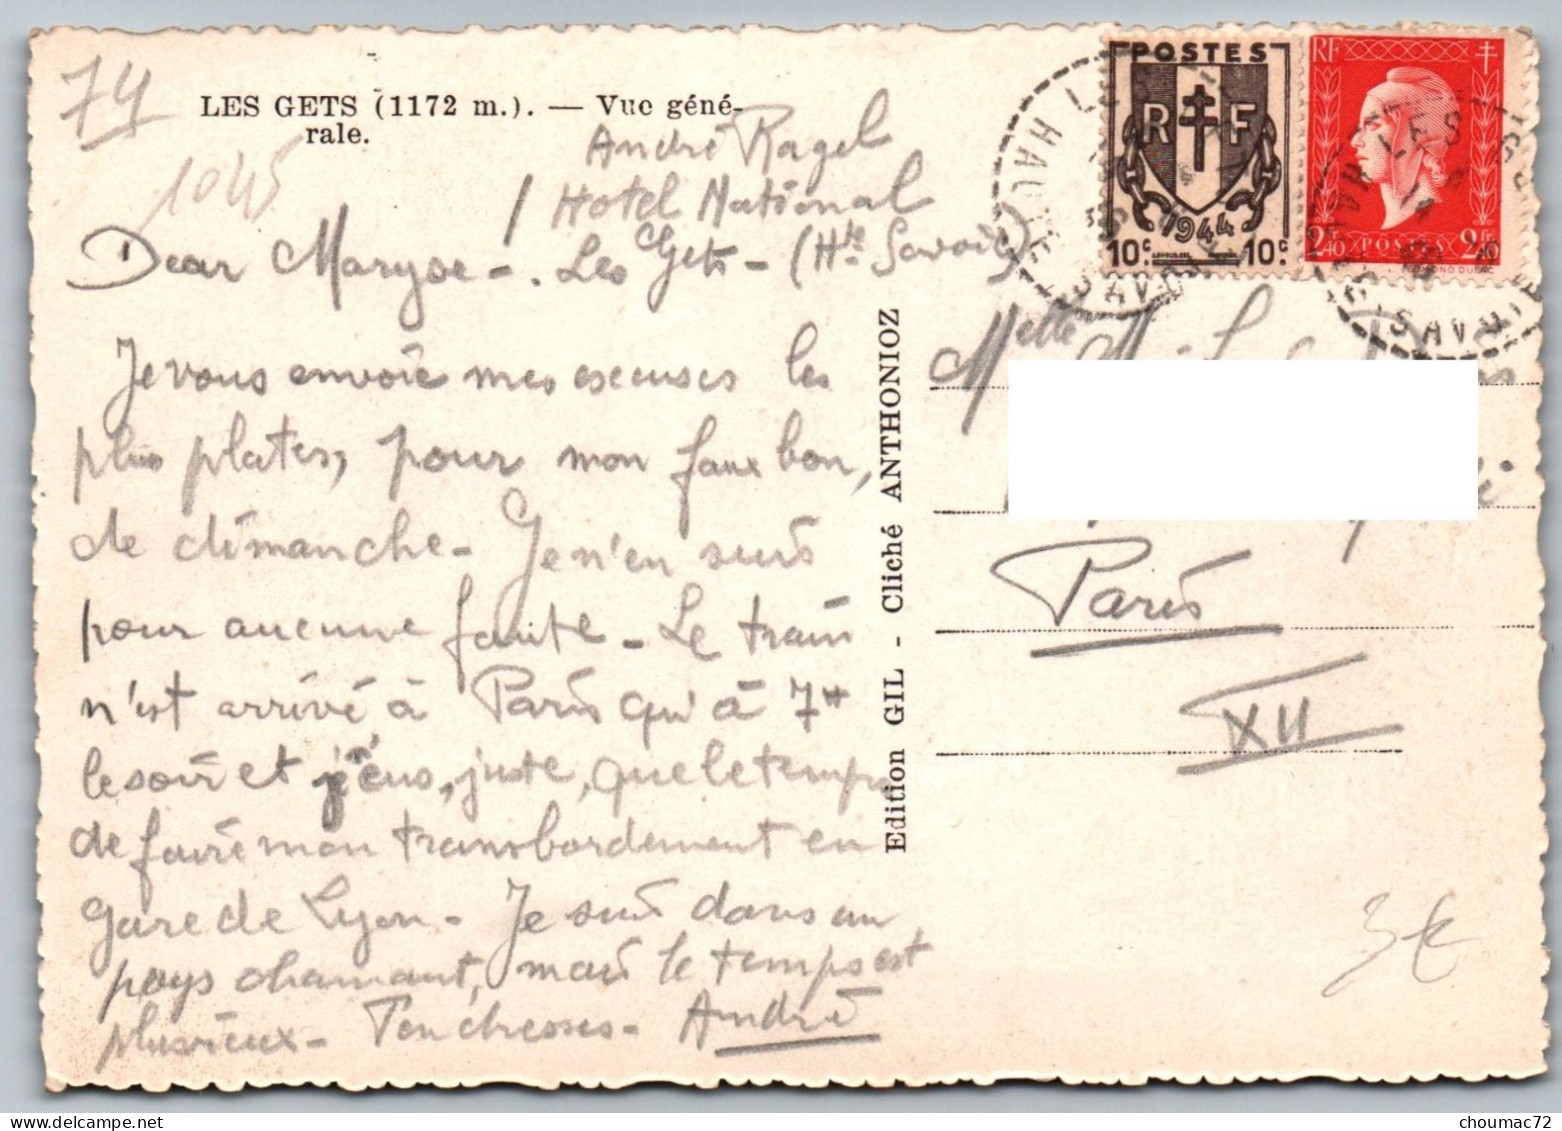 74
LES GETS (1172 m.). — Vue géné-
rale.
1045
André Ragel
Hotel National
Dear Maryse - . Les Gets - (Hte Savoie)
Je vous envoie mes excuses les
plus plates, pour mon faux bon,
de dimanche - Je n'en suis
pour aucune faute - Le train
n'est arrivé à Paris qu'à 7H
le soir et j'eus, juste, que le temps
de faire mon transbordement en
gare de Lyon - Je suis dans un
pays charmant, mais le temps est
pluvieux - Tendresses - André
Edition GIL - Cliché ANTHONIOZ
POSTES
RF
1944
10c 10c
RF
2f40 POSTES 2f40
EDMOND DULAC
LES
HAUTE
SAVOIE
LES
SAVOIE
Melle M.
Paris
XII
3€
choumac72